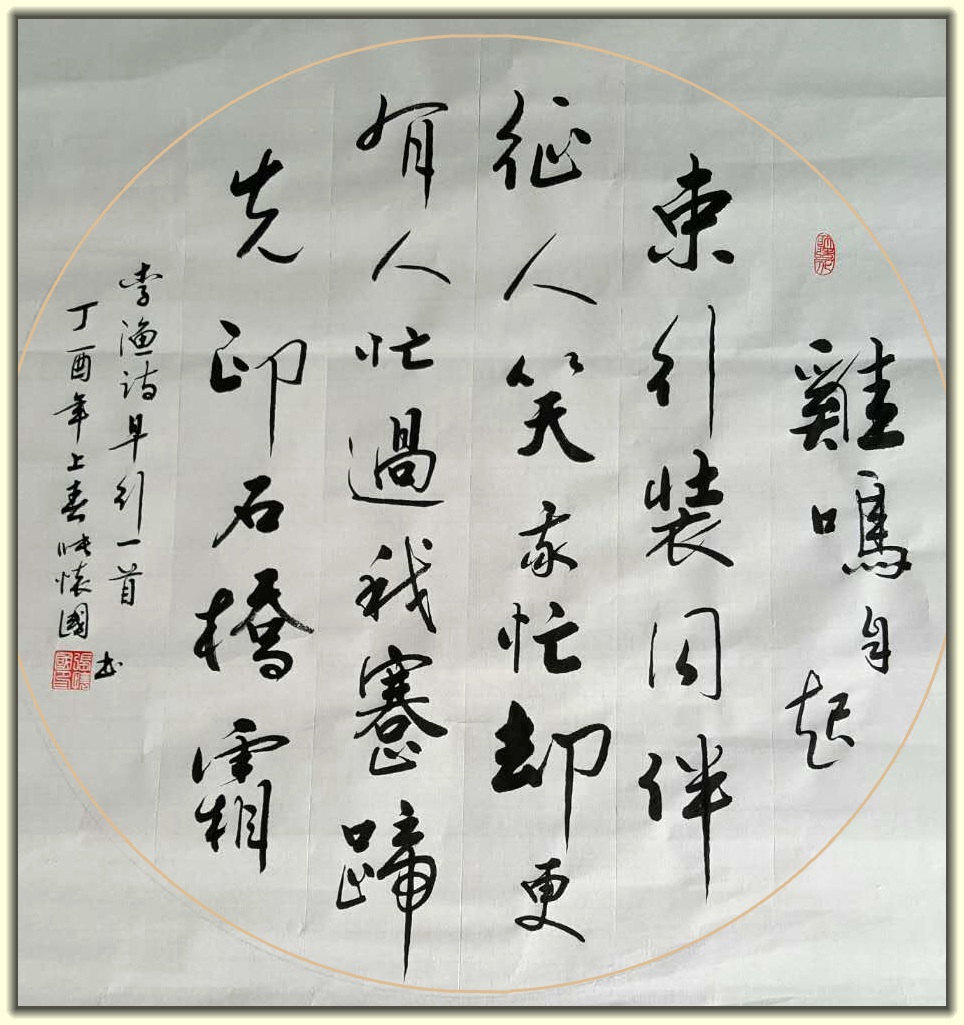 雞鳴自起
束行裝同伴
征人笑我忙却更
有人忙過我蹇蹄
先印石橋霜
李漁詩早行一首
丁酉年上春張懷國书